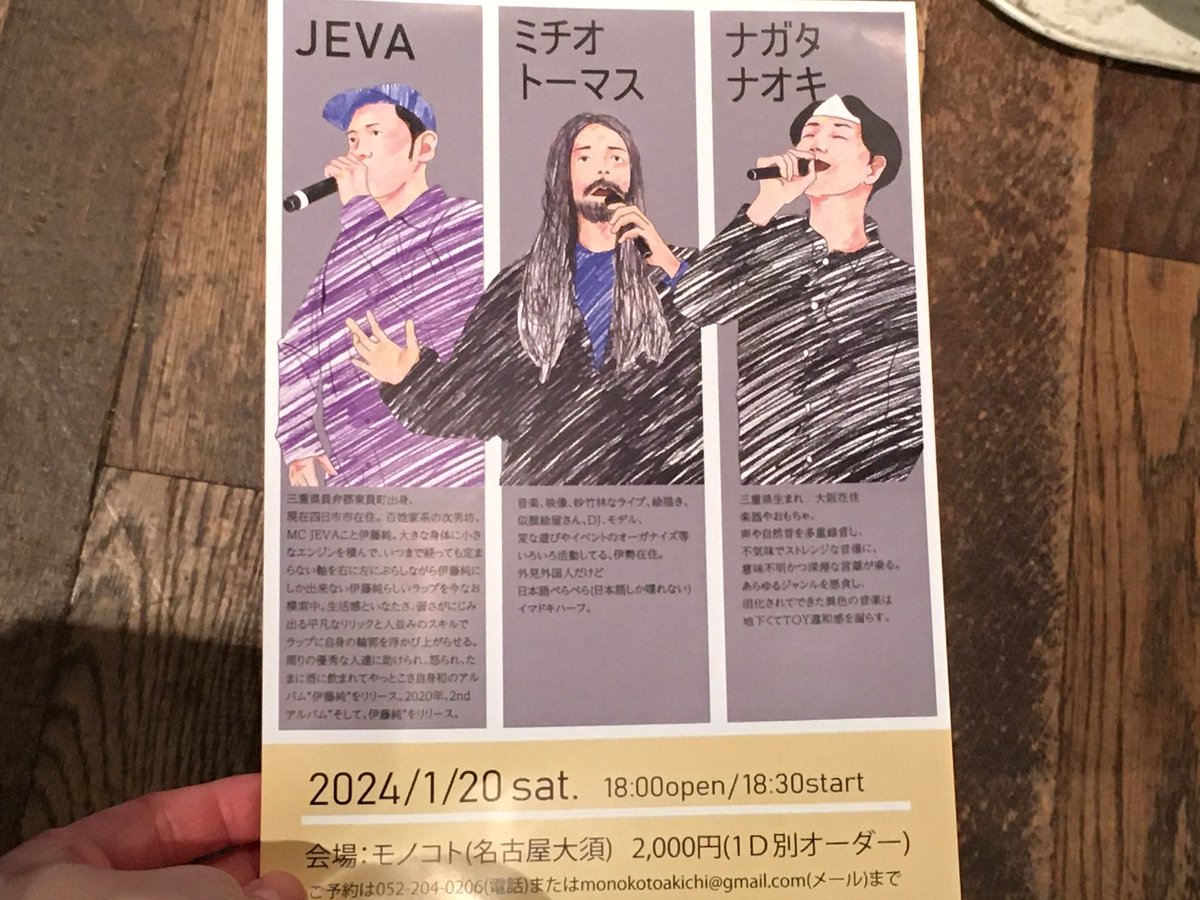 JEVA
三重県員弁郡東員町出身、
現在四日市市在住。百姓家系の次男坊、
MC JEVAこと伊藤純。大きな身体に小さ
なエンジンを積んで、いつまで経っても定ま
らない軸を右に左にぶらしながら伊藤純に
しか出来ない伊藤純らしいラップを今なお
模索中。生活感といなたさ、弱さがにじみ
出る平凡なリリックと人並みのスキルで
ラップに自身の輪郭を浮かび上がらせる。
周りの優秀な人達に助けられ、怒られ、た
まに酒に飲まれてやっとこさ自身初のアル
バム"伊藤純"をリリース。2020年、2nd
アルバム"そして、伊藤純"をリリース。
ミチオ
トーマス
音楽、映像、妙竹林なライブ、絵描き、
似顔絵屋さん、DJ、モデル、
変な遊びやイベントのオーガナイズ等
いろいろ活動してる、伊勢在住。
外見外国人だけど
日本語ぺらぺら(日本語しか喋れない)
イマドキハーフ。
ナガタ
ナオキ
三重県生まれ 大阪在住
楽器やおもちゃ、
声や自然音を多重録音し、
不気味でストレンジな音像に、
意味不明かつ深淵な言葉が乗る。
あらゆるジャンルを悪食し、
消化されてできた異色の音楽は
地下くてTOY違和感を漏らす。
2024/1/20 sat. 18:00open/18:30start
会場:モノコト(名古屋大須) 2,000円(1D別オーダー)
ご予約は052-204-0206(電話)またはmonokotoakichi@gmail.com(メール)まで